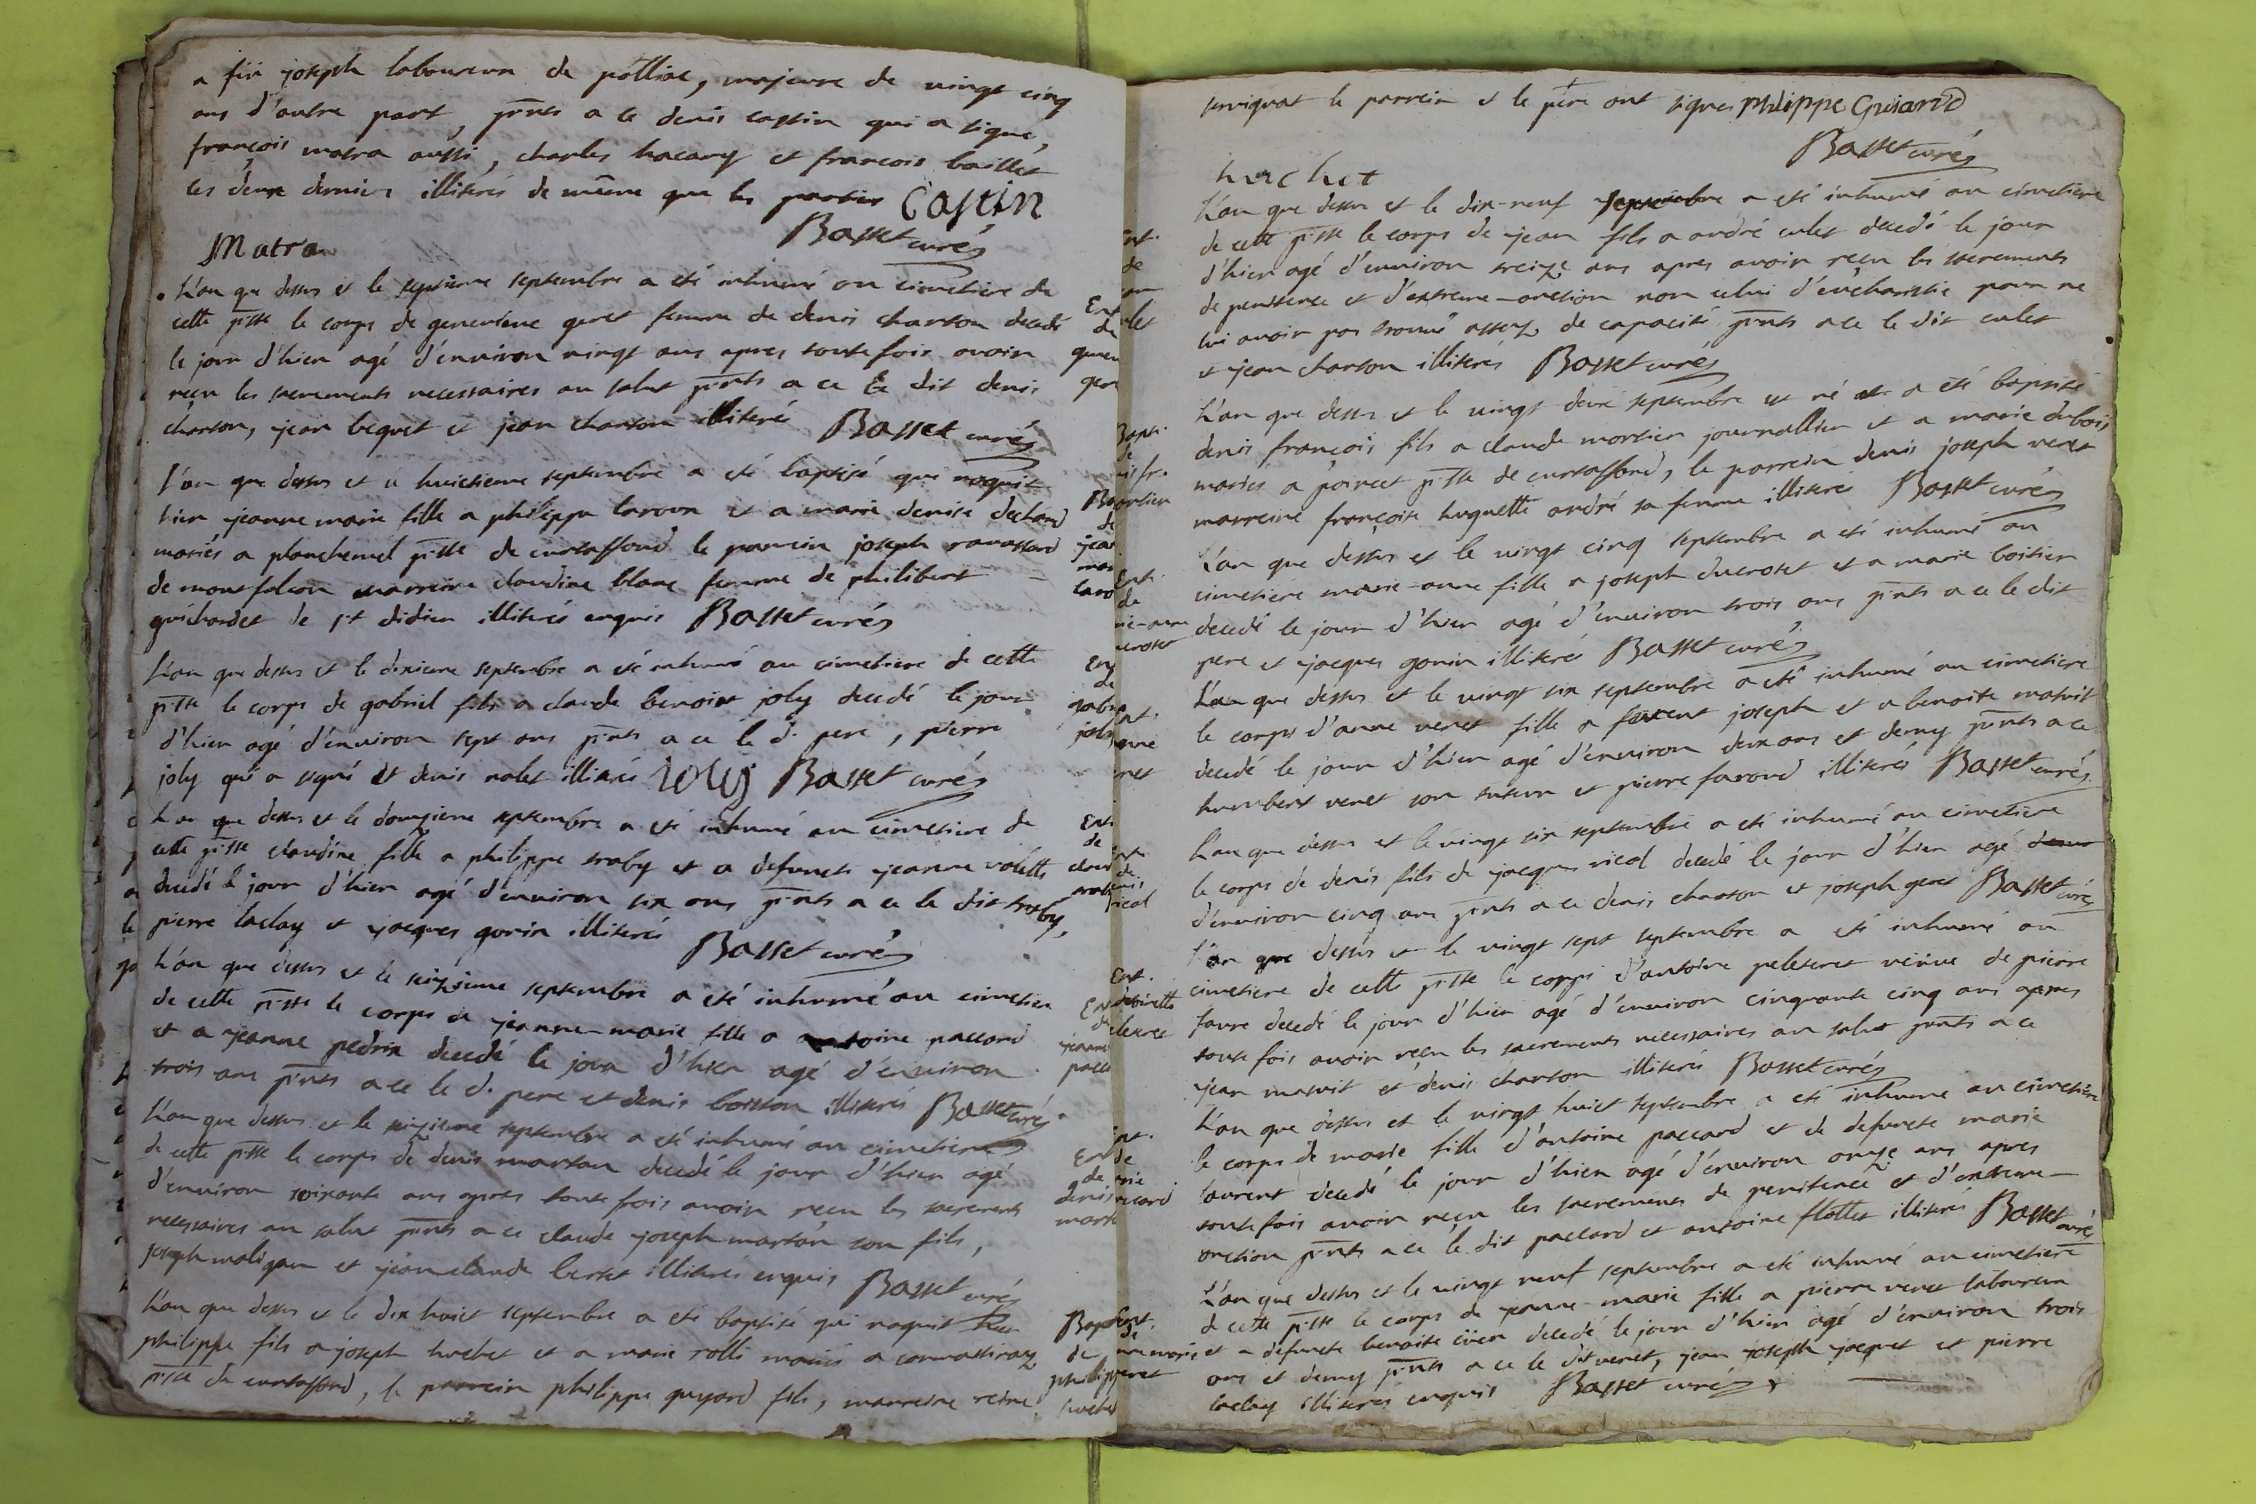 a fü joseph laboureur de polliac, majeure de vingt cinq
ans d'autre part, pnts a ce denis castin qui a signé,
françois matra aussi, charles hacary et françois baillet
les deux derniers illiterés de même que les parties Castin
Basset curé
Matra
L'an que dessus et le septieme septembre a eté inhumé au cimetiere de
cette pssse le corps de genevieve geret femme de denis charton decedé
le jour d'hier agé d'environ vingt ans apres toutefois avoir
reçu les sacrements necessaires au salut pnts a ce le dit denis
charton, jean bequet et jean charton illiteré Basset curé
l'an que dessus et le huictieme septembre a eté baptisé qui naquit
hier jeanne marie fille a philippe laroux et a marie denise dechard
mariés a planchemel psse de curtaffond le parrein joseph ravassard
de montfalcon marreine claudine blanc femme de philibert
guichardet de st didier illiterés enquis Basset curé
L'an que dessus et le dixieme septembre a eté inhumé au cimetiere de cette
psse le corps de gabriel fils a claude benoist joly decedé le jour
d'hier agé d'environ sept ans pnts a ce le d. pere, pierre
joly qui a signé et denis nalet illiteré ioly Basset curé
L'an que dessus et le douzieme septembre a eté inhumé au cimetiere de
cette psse claudine fille a philippe traby et a defuncte jeanne volette
decedé le jour d'hier agé d'environ six ans pnts a ce le dit traby,
pierre laclay et jacques gonin illiterés Basset curé
L'an que dessus et le seizieme septembre a eté inhumé au cimetiere
de cette psse le corps de jeanne-marie fille a antoine paccard
et a jeanne pedrix decedé le jour d'hier agé d'environ
trois ans pnts a ce le d. pere et denis boisson illiterés Basset curé
L'an que dessus et le seizieme septembre a eté inhumé au cimetiere
de cette psse le corps de denis martan decedé le jour d'hier agé
d'environ soixante ans apres toutefois avoir reçu les sacrements
necessaires au salut pnts a ce claude joseph martan son fils,
joseph maligan et jean claude berset illiterés enquis Basset curé
L'an que dessus et le dix huict septembre a eté baptisé qui naquit hier
philippe fils a joseph huchet et a marie rolli mariés a
psse de curtaffond, le parrein philippe guyard fils, marreine reine
serviynat le parrein et le père ont signés philippe Guiard
Basset curé
huchet
L'an que dessus et le dix-neuf septembre a eté inhumé au cimetiere
de cette psse le corps de jean fils a andré culet decedé le jour
d'hier agé d'environ treize ans apres avoir reçu les sacrements
de penitence et d'extreme-onction non celui d'eucharistie pour ne
lui avoir pas trouvé assez de capacité pnts a ce le dit culet
et jean charton illiterés Basset curé
L'an que dessus et le vingt deux septembre est né et a eté baptisé
denis françois fils a claude mortier journallier et a marie dubois
mariés a poincet psse de curtaffond, le parrein denis joseph veret
marreine françoise huguette andré sa femme illiterés Basset curé
L'an que dessus et le vingt cinq septembre a eté inhumé au
cimetiere marie-anne fille a joseph ducroset et a marie boitier
decedé le jour d'hier agé d'environ trois ans pnts a ce le dit
pere et jacques gonin illiterés Basset curé
L'an que dessus et le vingt six septembre a eté inhumé au cimetiere
le corps d'anne veret fille a joseph et a benoite matuit
decedé le jour d'hier agé d'environ deux ans et demy pnts a ce
humbert veret son tuteur et pierre favond illiterés Basset curé
L'an que dessus et le vingt six septembre a eté inhumé au cimetiere
le corps de denis fils de jacques nicol decedé le jour d'hier agé
d'environ cinq ans pnts a ce denis charton et joseph geret Basset curé
l'an que dessus et le vingt sept septembre a eté inhumé au
cimetiere de cette psse le corps d'antoine peleteret veuve de pierre
favre decedé le jour d'hier agé d'environ cinquante cinq ans apres
toute fois avoir reçu les sacrements necessaires au salut pnts a ce
jean matuit et denis charton illiterés Basset curé
L'an que dessus et le vingt huict septembre a eté inhumé au cimetiere
le corps de marie fille d'antoine paccard et de defuncte marie
laurent decedé le jour d'hier agé d'environ onze ans apres
toute fois avoir reçu les sacrements de penitence et d'extreme-
onction pnts a ce le dit paccard et antoine flottet illiterés Basset curé
L'an que dessus et le vingt neuf septembre a eté inhumé au cimetiere
de cette psse le corps de jeanne-marie fille a pierre veret laboureur
et a defuncte benoite decedé le jour d'hier agé d'environ trois
ans et demy pnts a ce le dit veret, jean joseph jacquet et pierre
laclay illiterés enquis Basset curé